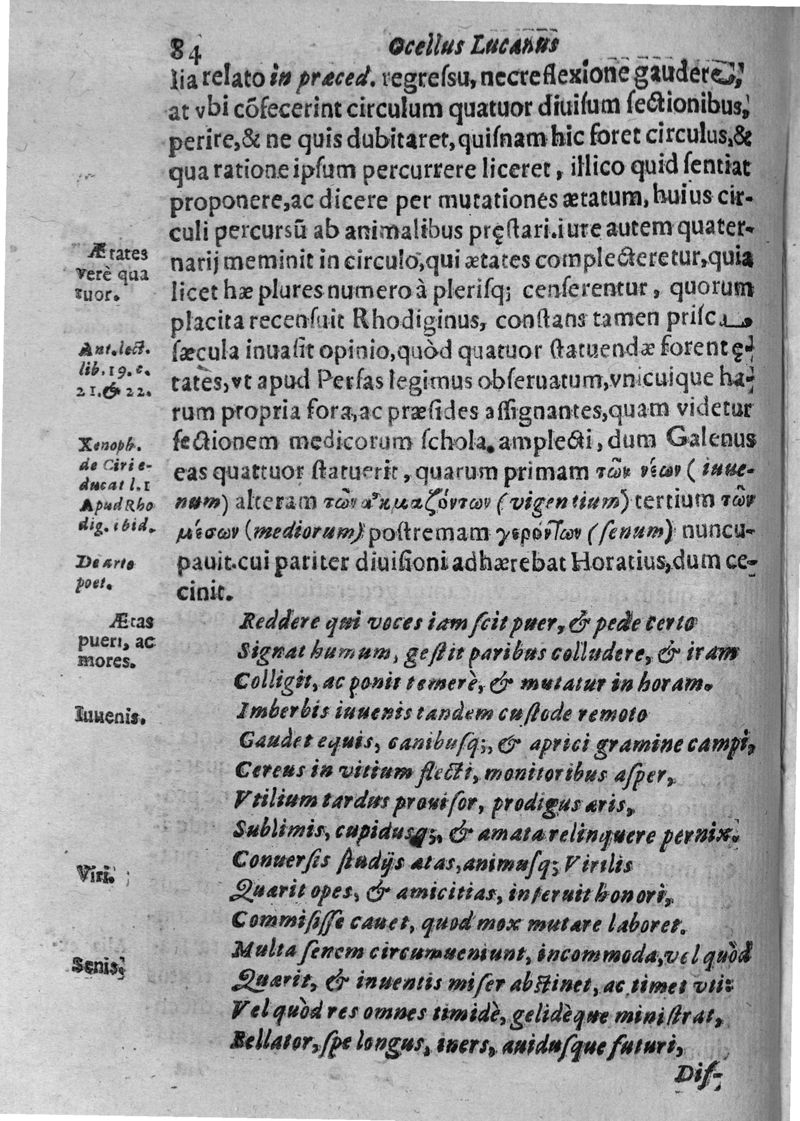 84 Ocellus Lucanus
lia relato in præced. regressu, nec reflexione gaudere,
at vbi cõfecerint circulum quatuor diuisum sectionibus,
perire, & ne quis dubitaret, quisnam hic foret circulus, &
qua ratione ipsum percurrere liceret, illico quid sentiat
proponere, ac dicere per mutationes ætatum, huius cir-
culi percursũ ab animalibus pręstari. iure autem quater-
narij meminit in circulo, qui ætates complecteretur, quia
licet hæ plures numero à plerisq; censerentur, quorum
placita recensuit Rhodiginus, constans tamen prisca
sæcula inuasit opinio, quòd quatuor statuendæ forent ę-
tates, vt apud Persas legimus obseruatum, vnicuique ha-
rum propria fora, ac præsides assignantes, quam videtur
sectionem medicorum schola amplecti, dum Galenus
eas quattuor statuerit, quarum primam τῶν νέων (iuue-
num) alteram τῶν ἀκμαζόντων (vigentium) tertium τῶν
μέσων (mediorum) postremam γερόντων (senum) nuncu-
pauit. cui pariter diuisioni adhærebat Horatius, dum ce-
cinit.
Reddere qui voces iam scit puer, & pede certo
Signat humum, gestit paribus colludere, & iram
Colligit, ac ponit temerè, & mutatur in horam.
Imberbis iuuenis tandem custode remoto
Gaudet equis, canibusq;, & aprici gramine campi,
Cereus in vitium flecti, monitoribus asper,
Vtilium tardus prouisor, prodigus æris,
Sublimis, cupidusq;, & amata relinquere pernix.
Conuersis studijs ætas, animusq; Virilis
Quærit opes, & amicitias, inseruit honori,
Commisisse cauet, quod mox mutare laboret.
Multa senem circumueniunt, incommoda, vel quòd
Quærit, & inuentis miser abstinet, ac timet vti:
Vel quòd res omnes timidè, gelidèque ministrat,
Bellator, spe longus, iners, auidusque futuri,
Dif-
Ætates
verè qua
tuor.
Ant. lect.
lib. 19. c.
21. & 22.
Xenoph.
de Ciri e-
ducat l. 1
Apud Rho
dig. ibid.
De arte
poet.
Ætas
pueri, ac
mores.
Iuuenis.
Viri.
Senis.